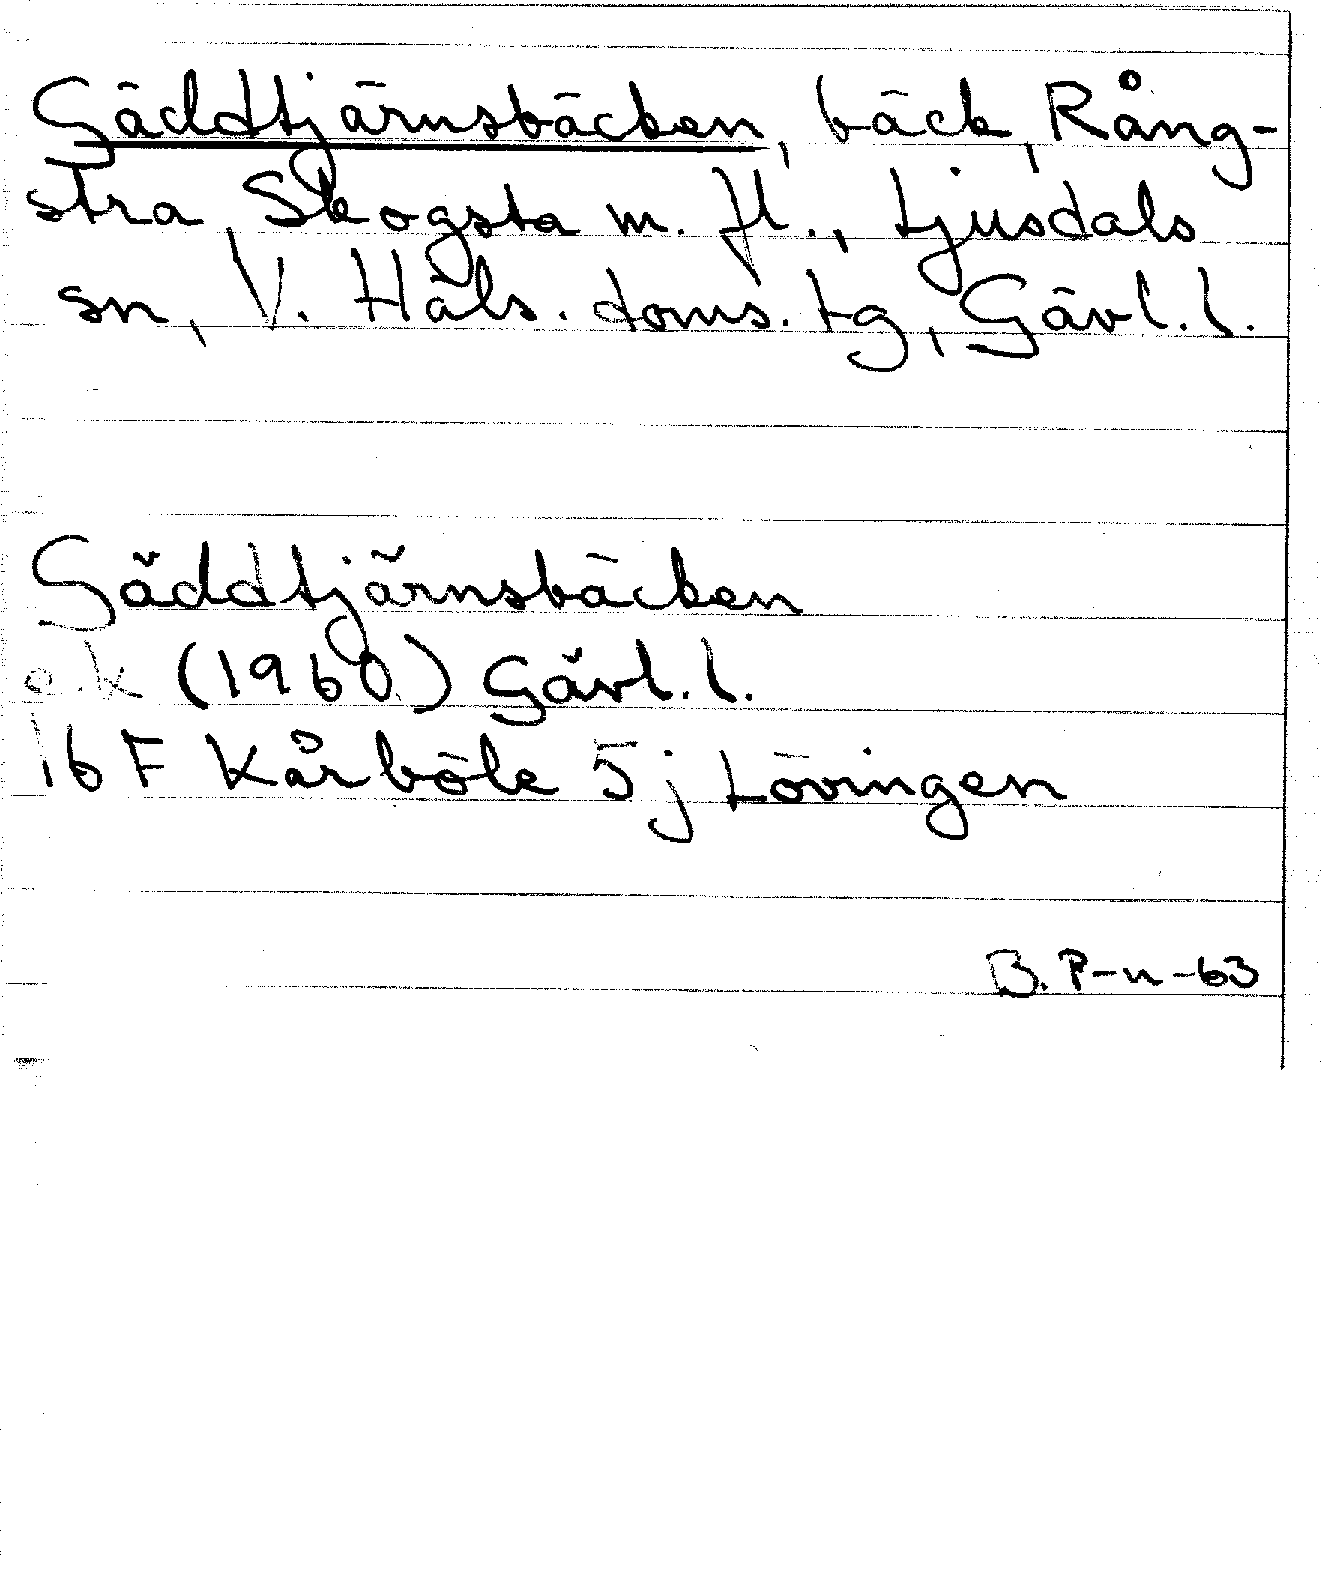 Gäddtjärnsbäcken, bäck, Rång-
stra, Skogsta m. fl., Ljusdals
sn, V. Häls. doms. tg, Gävl. l.
Gäddtjärnsbäcken
e.k (1960) Gävl. l.
16 F Kårböle 5 j Lövingen
B. P-n -63